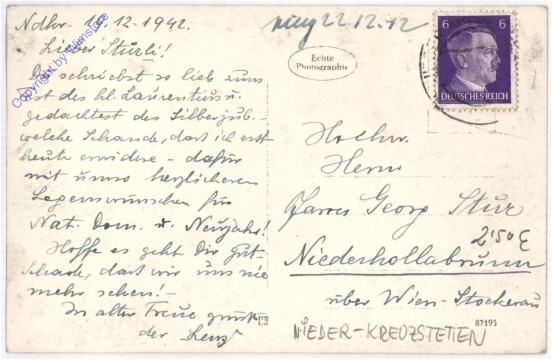 12. 1942.
Lieber Sturli!
Du schriebst so lieb zum
Fest des hl. Laurentius u.
gedachtest des Silberjub. -
welche Schande, dass ich erst
heute erwidere - dafür
mit umso herzlicheren
Segenswünschen für
Nat. Dom. u. Neujahr!
Hoffe es geht Dir gut -
Schade, dass wir uns nie
mehr sehen! -
In alter Treue grüsst
der "Lenz"
Copyright by Wienstore
22 12. 42
Echte
Photographie
6 6
DEUTSCHES REICH
Hochw.
Herrn
Pfarrer Georg Stur
2'50 €
Niederhollabrunn
über Wien - Stockerau
87195
NIEDER-KREUZSTETTEN